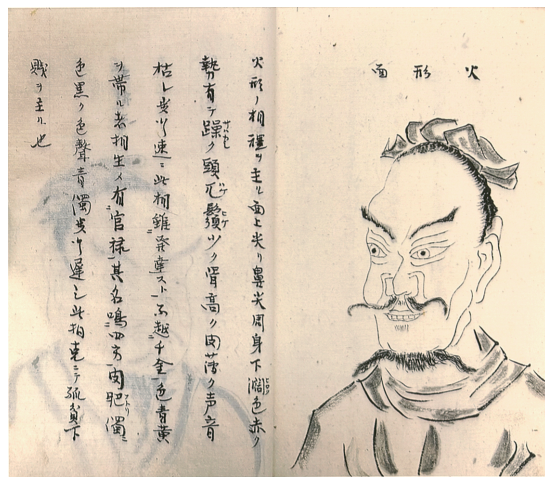 火形面
火形ノ相禮ヲ主ル面上尖リ鼻尖周身下濶色赤ク
勢有テ躁ク頭兀鬚少ク骨高ク肉薄ク声音
枯レ歩ミ速ニ此相雖発産スト不越千金色青黄
ヲ帯ル者相生〆有官禄其名鳴四方肉肥濁
色黒ク色聲音濁歩ミ遅シ此相克ニテ孤貧下
賎ヲ主ル也